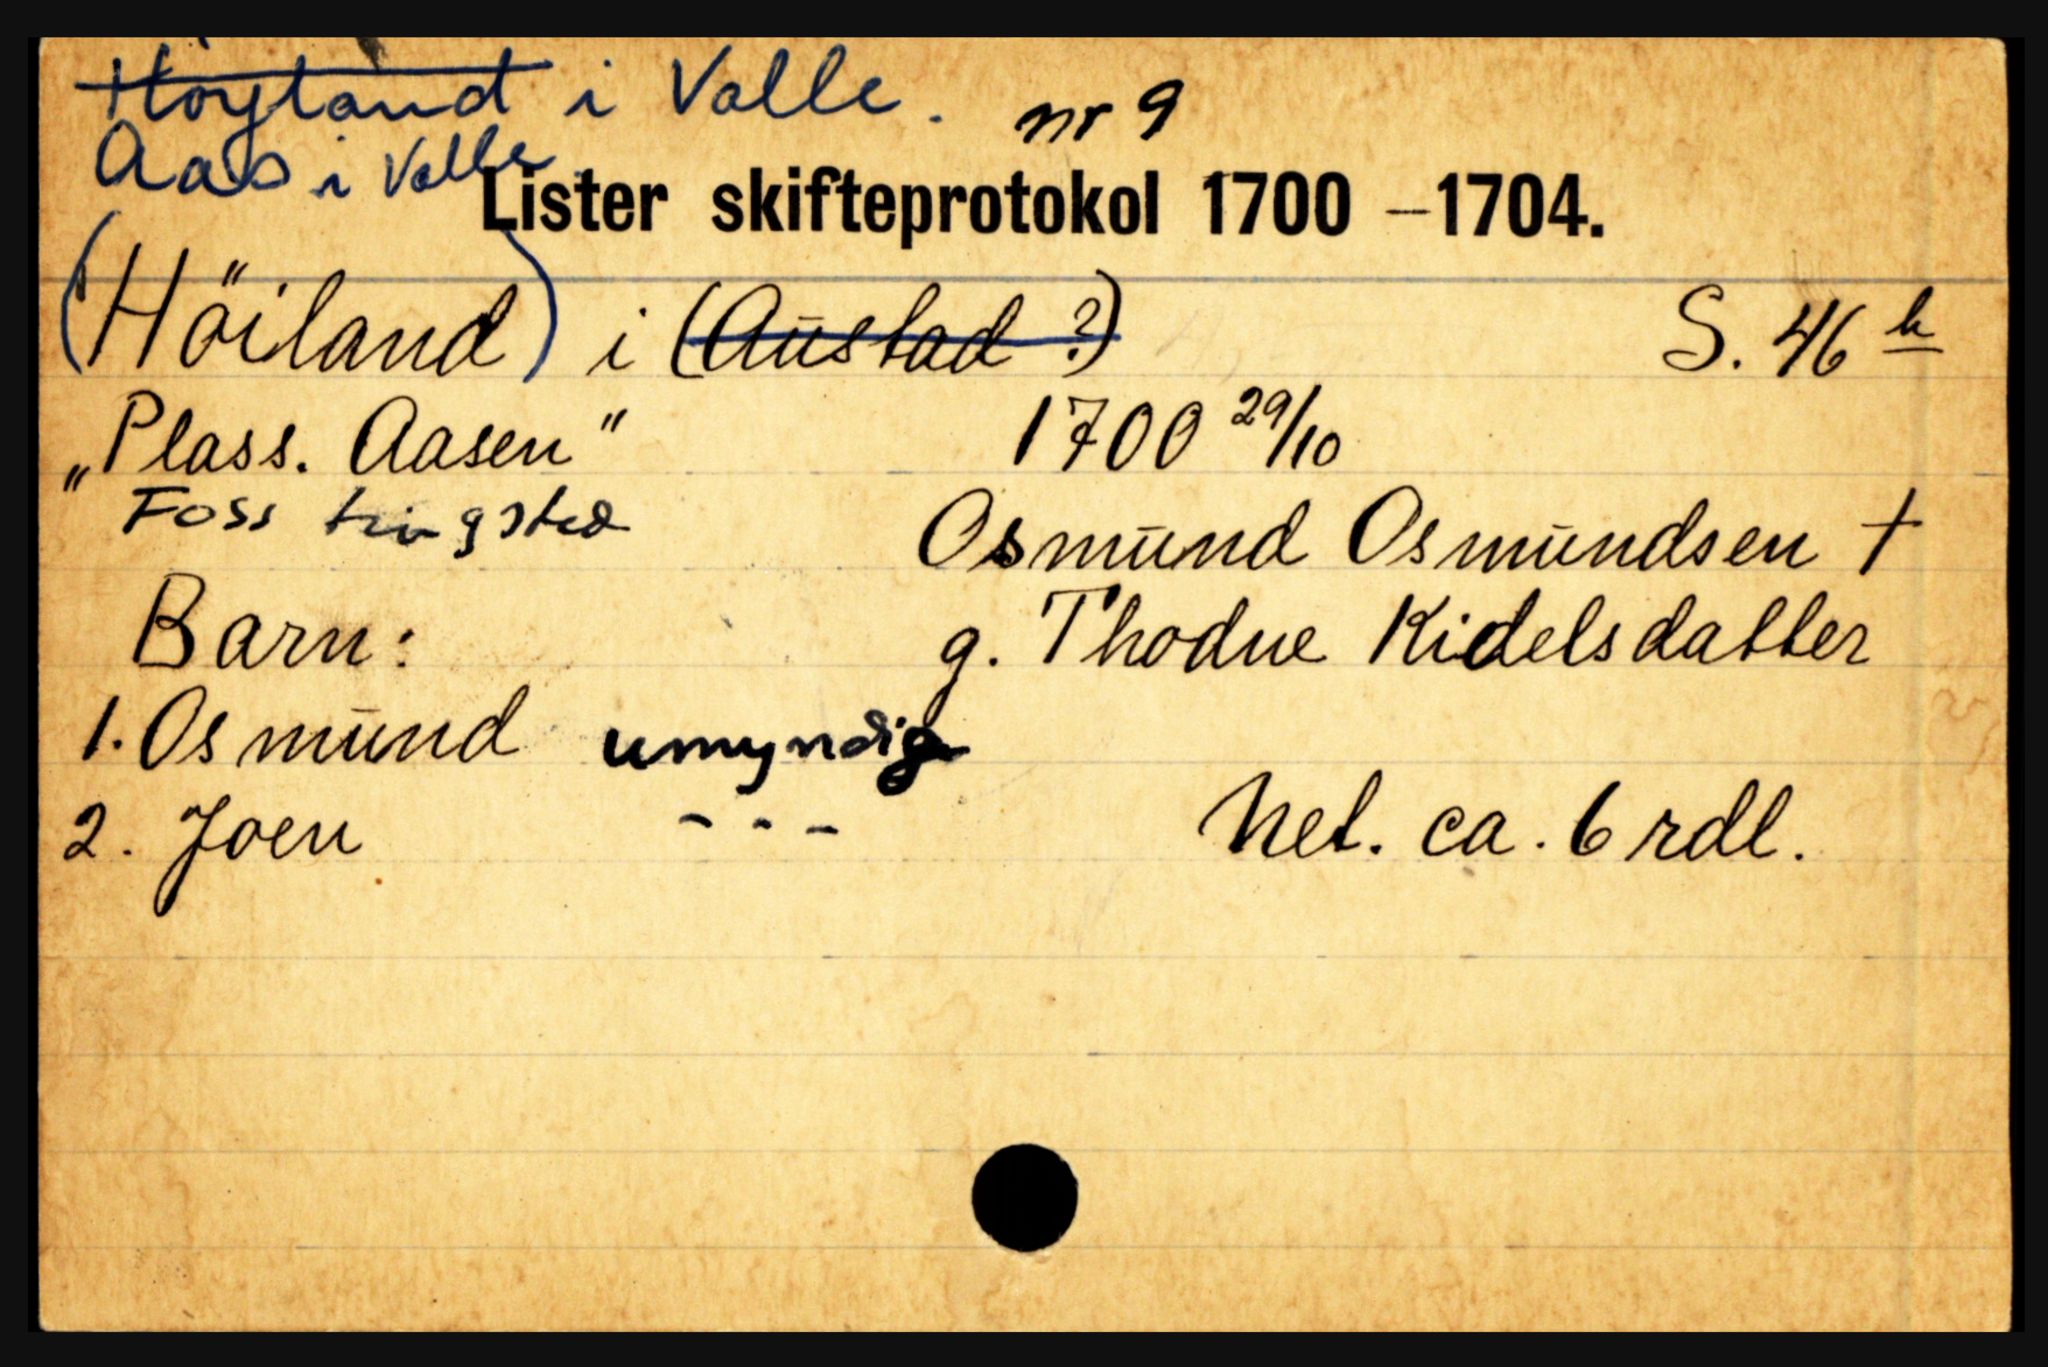 Höyland i Valle. nr 9
Aas i Valle
Lister skifteprotokol 1700 – 1704.
(Höiland) i (Austad ?) S. 46 b
„Plass. Aasen" 1700 29/10
Foss tingsted
Osmund Osmundsen +
Barn: g. Thodne Kidelsdatter
1. Osmund umyndig
2. Joen - - - Net. ca. 6 rdl.